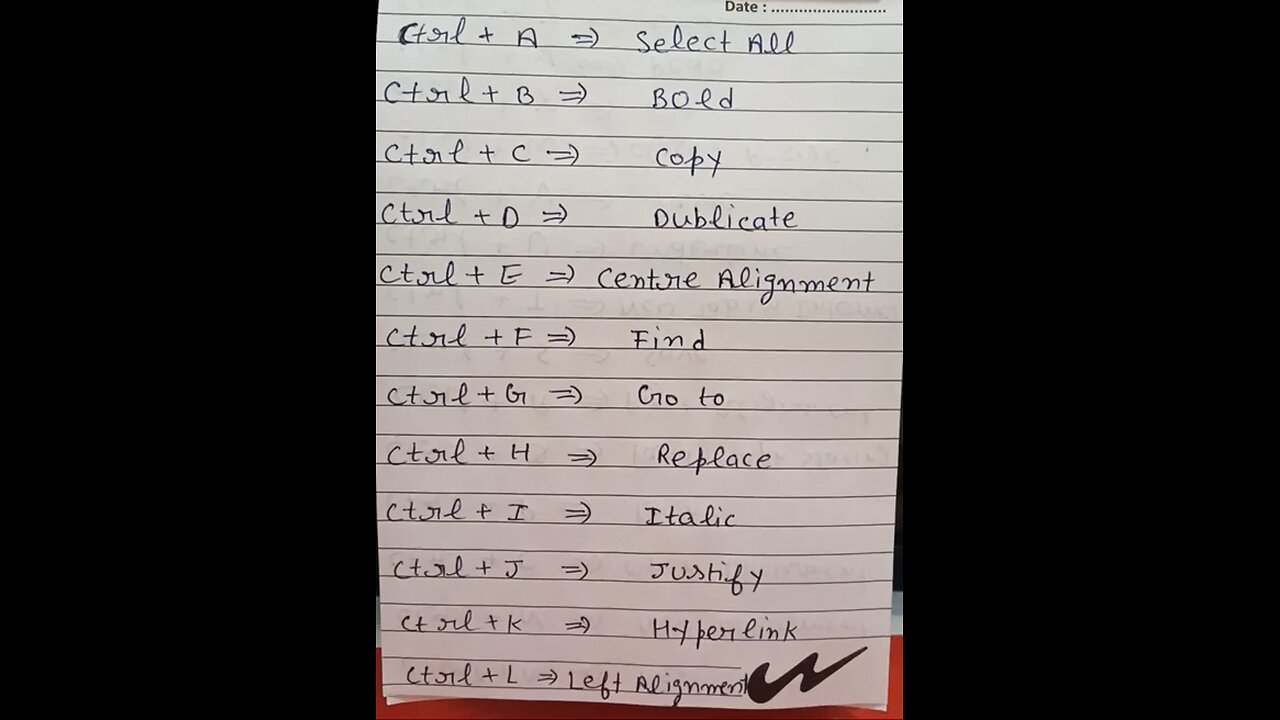 Date : ..........................
Ctrl + A ⇒ Select All
Ctrl + B ⇒ Bold
Ctrl + C ⇒ Copy
Ctrl + D ⇒ Dublicate
Ctrl + E ⇒ Centre Alignment
Ctrl + F ⇒ Find
Ctrl + G ⇒ Go to
Ctrl + H ⇒ Replace
Ctrl + I ⇒ Italic
Ctrl + J ⇒ Justify
Ctrl + K ⇒ Hyperlink
Ctrl + L ⇒ Left Alignment